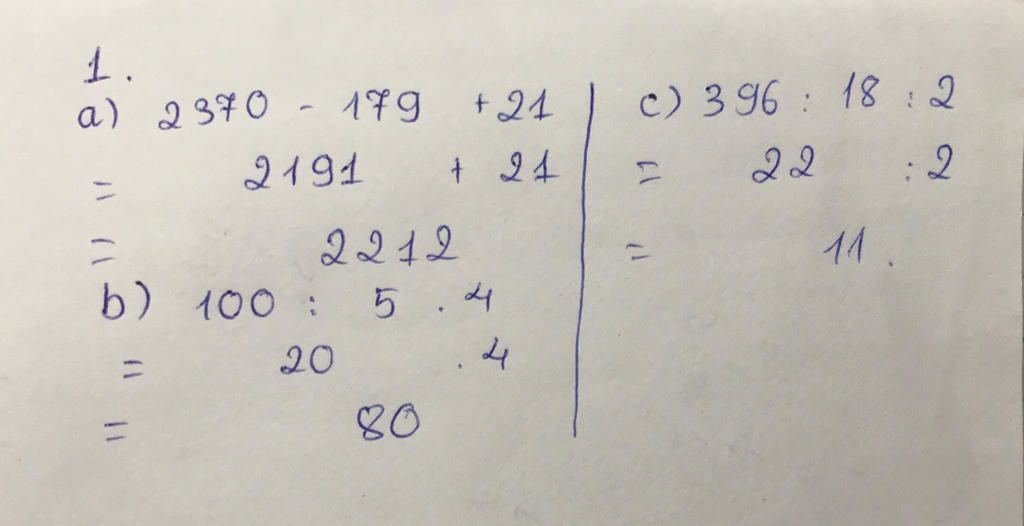 1.
a) 2370 - 179 + 21
= 2191 + 21
= 2212
b) 100 : 5 . 4
= 20 . 4
= 80
c) 396 : 18 : 2
= 22 : 2
= 11.